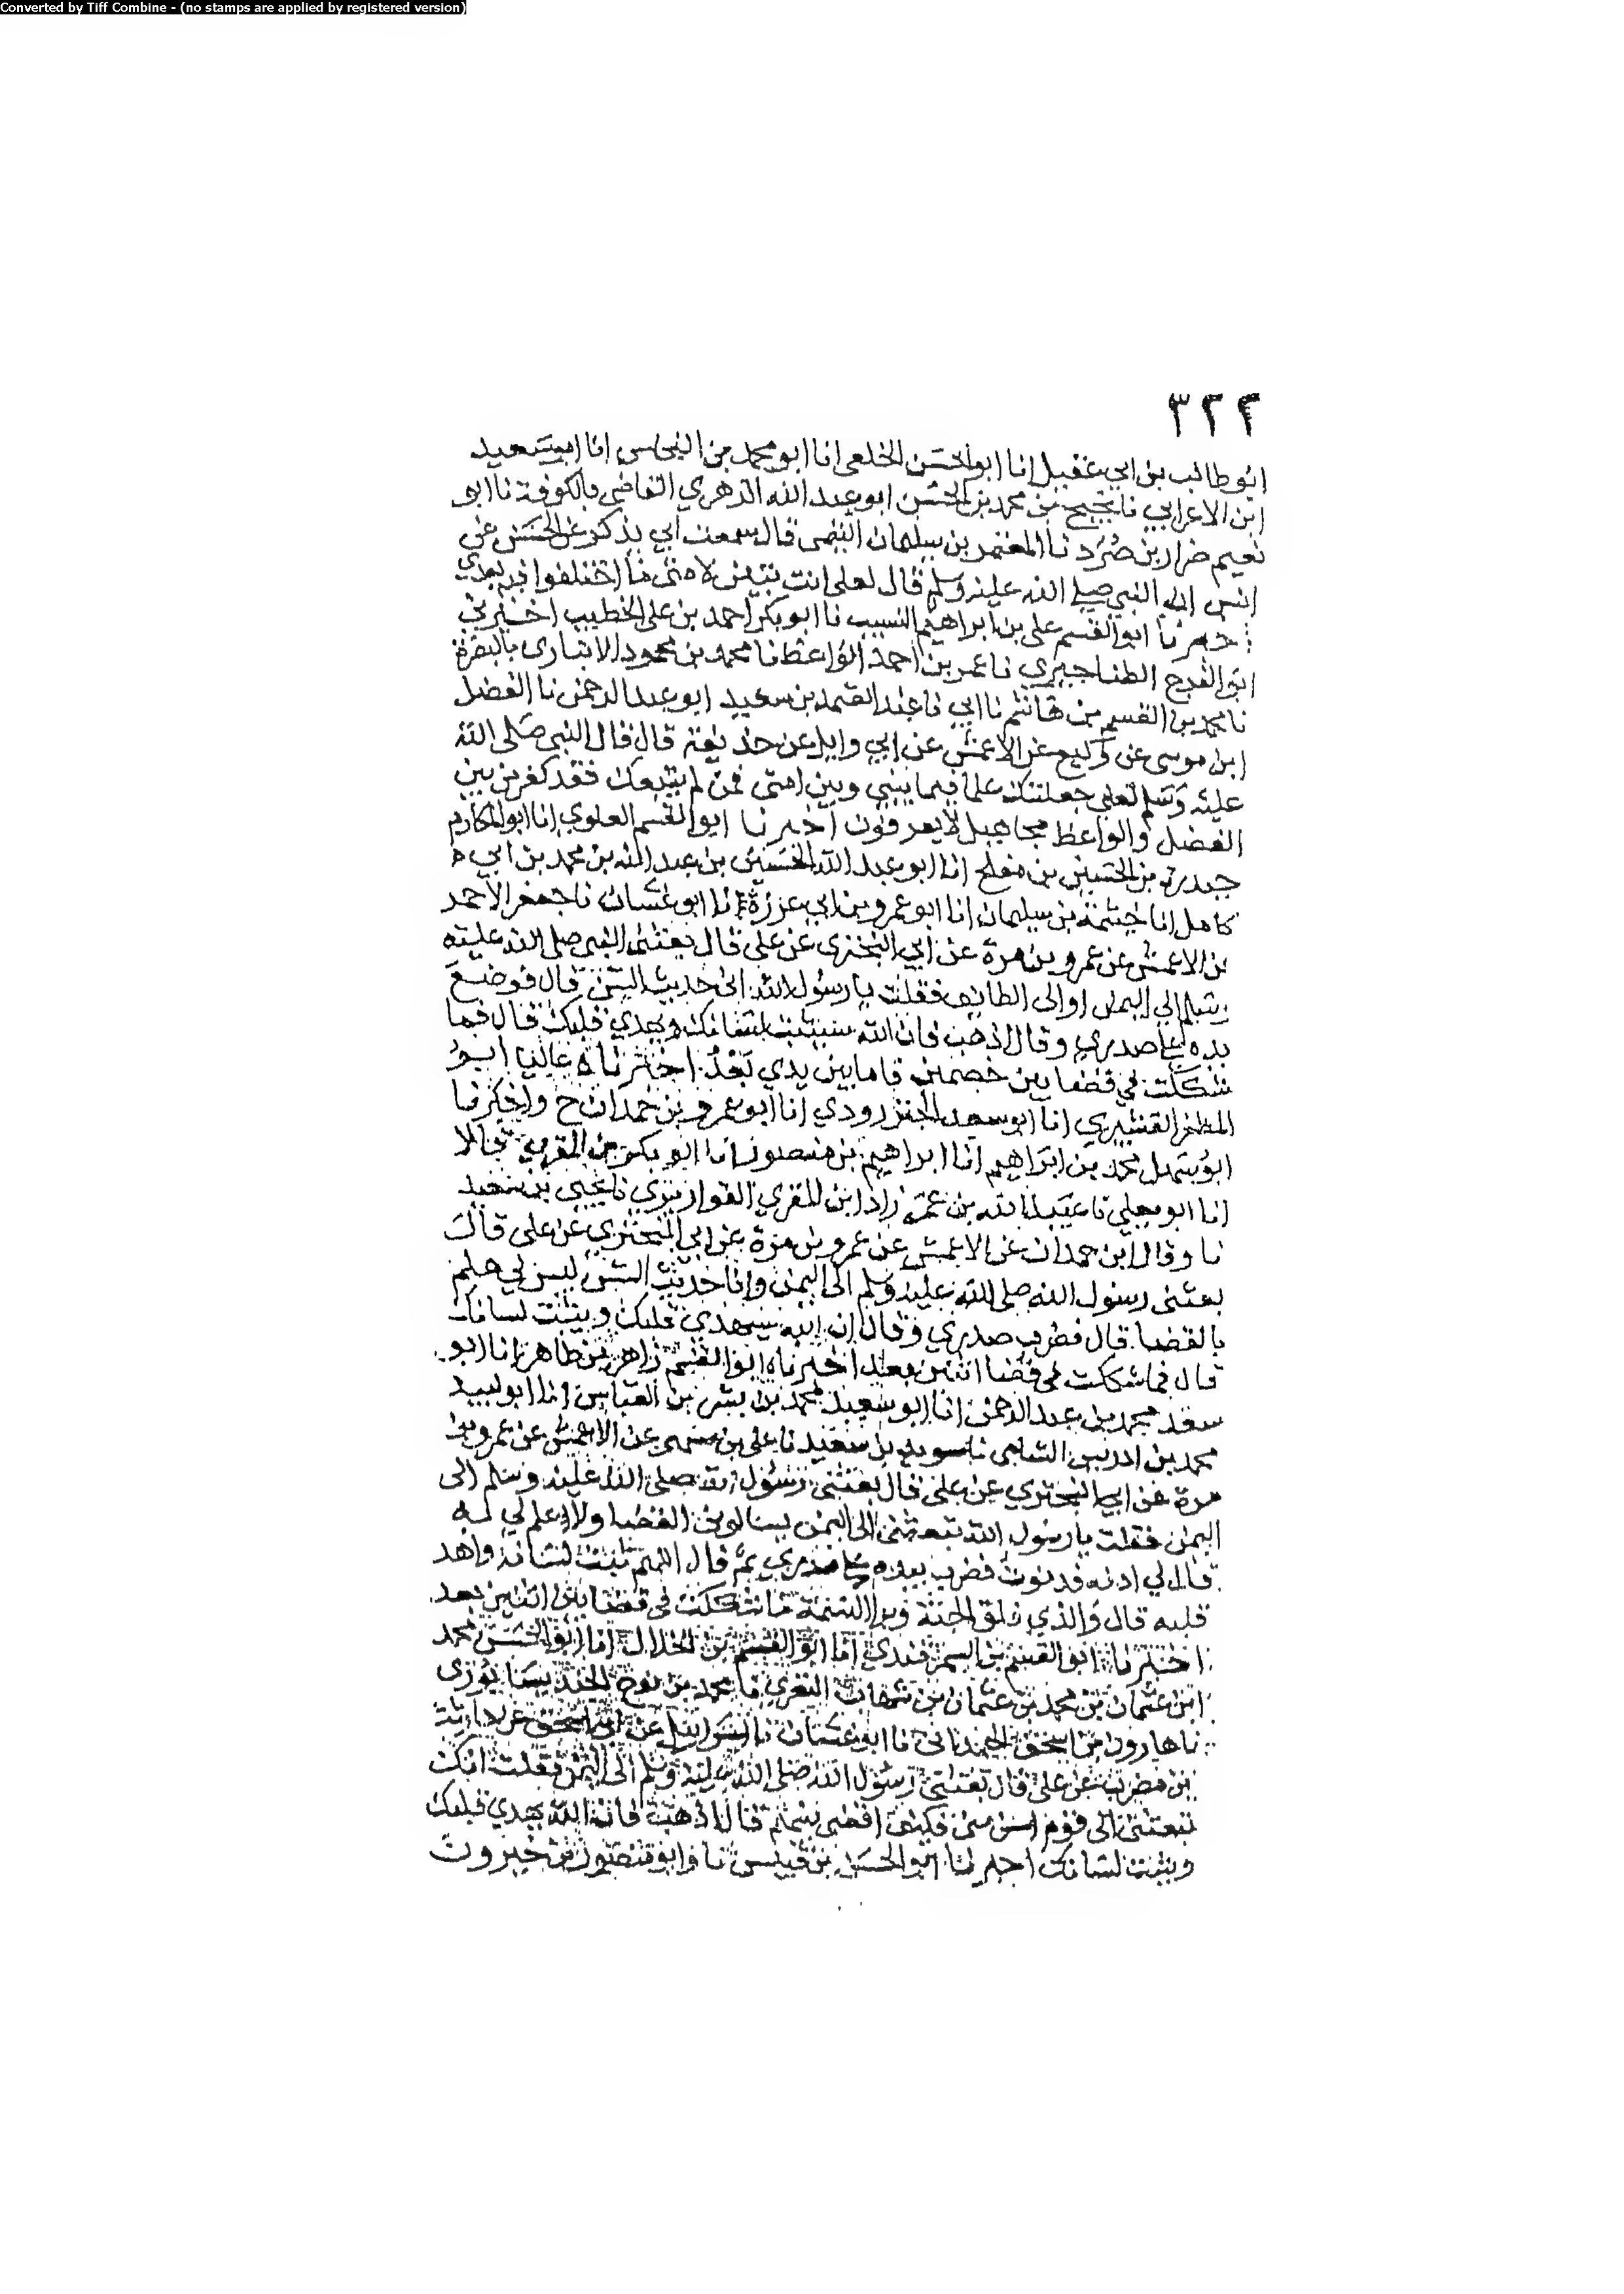 Converted by Tiff Combine - (no stamps are applied by registered version)
٣٢٢
ابو طالب بن ابي عقيل انا ابو الحسن الخلعي انا ابو محمد بن النحاس انا ابو سعيد
ابن الاعرابي نا نجيح بن محمد بن الحسن ابو عبد الله الزهري القاضي بالكوفة نا ابو
نعيم ضرار بن صُرَد نا المعتمر بن سليمان التيمى قال سمعت ابي يذكر عن الحسن عن
انس ان النبي صلى الله عليه وسلم قال لعلي انت تبين لامتى ما اختلفوا فيه بعدي
اخبرنا ابو القسم على بن ابراهيم النسيب نا ابو بكر احمد بن على الخطيب اخبرني
ابو الفرج الطناجيري نا عمر بن احمد الواعظ نا محمد بن محمود الانبارى بالبصرة
نا محمد بن القسم بن هاشم نا ابي نا عبد الصمد بن سعيد ابو عبد الرحمن نا الفضل
ابن موسى عن وكيع عن الاعمش عن ابي وايل عن حذيفة قال قال النبي صلى الله
عليه وسلم لعلي جعلتك علما فيما بيني وبين امتى فمن لم يتبعك فقد كفر من بين
الفضل والواعظ مجاهيل لا يعرفون اخبرنا ابو القسم العلوي انا ابو المكارم
حيدرة بن الحسين بن مفلح انا ابو عبد الله الحسين بن عبد الله بن محمد بن ابي
كامل انا خيثمة بن سليمان انا ابو عمرو بن ابي عزرة انا ابو غسان نا جعفر الاحمر
بن الاعمش عن عمرو بن مرة عن ابي البختري عن على قال بعثنى النبي صلى الله عليه
وسلم الى اليمن او الى الطايف فقلت يا رسول الله انى حديث السن قال فوضع
يده على صدري وقال اذهب فان الله سيثبت لسانك ويهدي قلبك قال فما
شككت في قضا بين خصمين قاما بين يدي بَعْدُ اخبرناه عاليا ابو
المظفر القشيري انا ابو سعد الجنزرودي انا ابو عمرو بن حمدان ح واخبرنا
ابو سهل محمد بن ابراهيم انا ابراهيم بن منصور انا ابو بكر بن المقرى قالا
انا ابو يعلي نا عبيد الله بن عمر زاد ابن المقري القواريري نا يحيى بن سعيد
نا وقال ابن حمدان عن الاعمش عن عمرو بن مرة عن ابي البختري عن على قال
بعثنى رسول الله صلى الله عليه وسلم الى اليمن وانا حديث السن ليس لي علم
بالقضا قال فضرب صدري وقال ان الله سيهدي قلبك ويثبت لسانك
قال فما شككت في قضا اثنين بعد اخبرناه ابو القسم زاهر بن طاهر انا ابو
سعد محمد بن عبد الرحمن انا ابو سعيد محمد بن بشر بن العباس انا ابو لبيد
محمد بن ادريس الشامى نا سويد بن سعيد نا على بن مسهر عن الاعمش عن عمرو بن
مرة عن ابي البختري عن على قال بعثنى رسول الله صلى الله عليه وسلم الى
اليمن فقلت يا رسول الله تبعثنى الى اليمن يسالونى القضا ولا علم لي به
قال لي ادنه فدنوت فضرب بيده على صدري ثم قال اللهم ثبت لسانه واهد
قلبه قال والذي فلق الحبة وبرا النسمة ما شككت في قضا بين اثنين بعد
اخبرنا ابو القسم بن السمرقندي انا ابو القسم بن الخلال انا ابو الحسن محمد
ابن عثمان بن محمد بن عثمان بن شهاب النفري نا محمد بن نوح الجنديسابوري
نا هارون بن اسحق الهمدانى نا ابو غسان نا اسرائيل عن ابي اسحق عن حارثة
بن مضرب عن على قال بعثنى رسول الله صلى الله عليه وسلم الى اليمن فقلت انك
تبعثنى الى قوم اسن منى فكيف اقضى بينهم قال اذهب فان الله يهدي قلبك
ويثبت لسانك اخبرنا ابو الحسن بن قبيس نا وابو منصور بن خيرون